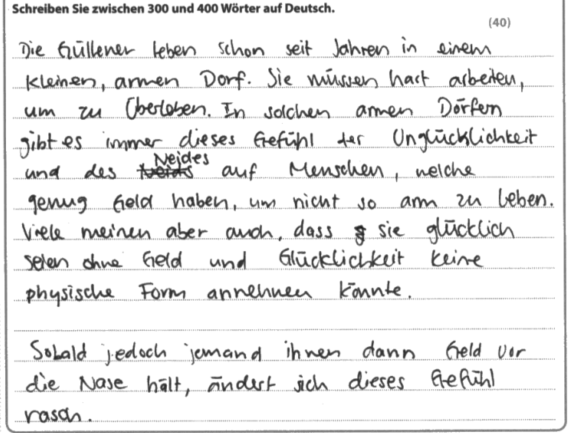 Schreiben Sie zwischen 300 und 400 Wörter auf Deutsch.
(40)
Die Güllener leben schon seit Jahren in einem
kleinen, armen Dorf. Sie müssen hart arbeiten,
um zu überleben. In solchen armen Dörfern
gibt es immer dieses Gefühl der Unglücklichkeit
und des Neides auf Menschen, welche
genug Geld haben, um nicht so arm zu leben.
Viele meinen aber auch, dass sie glücklich
seien ohne Geld und Glücklichkeit keine
physische Form annehmen könnte.
Sobald jedoch jemand ihnen dann Geld vor
die Nase hält, ändert sich dieses Gefühl
rasch.